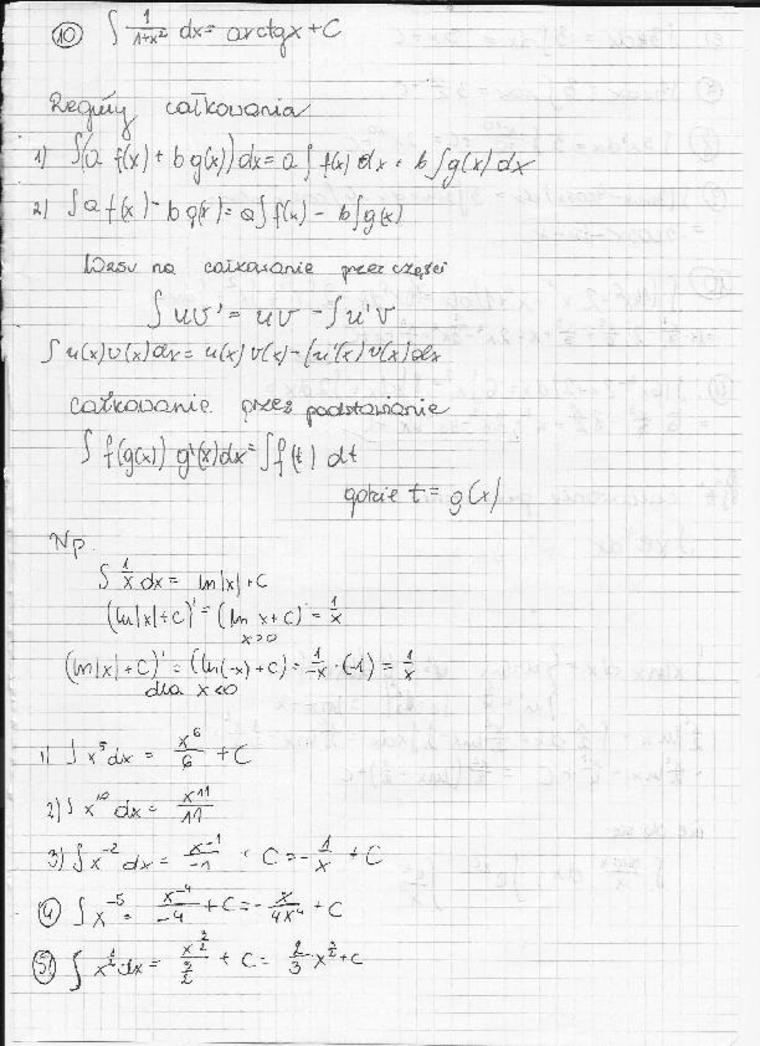 ⑩ ∫ 1/(1+x²) dx = arctgx + C
Reguły całkowania
1) ∫(a f(x) + b g(x)) dx = a ∫ f(x) dx + b ∫ g(x) dx
2) ∫ a f(x) - b g(x) = a ∫ f(x) - b ∫ g(x)
Wzsu na całkowanie przez części
∫ u v' = u v - ∫ u' v
∫ u(x) v(x) dx = u(x) v(x) - ∫ u'(x) v(x) dx
Całkowanie przez podstawianie
∫ f(g(x)) g'(x) dx = ∫ f(t) dt
gdzie t = g(x)
Np.
∫ 1/x dx = ln|x| + C
(ln|x| + C)' = (ln x + C)' = 1/x
x>0
(ln|x| + C)' = (ln(-x) + C) = 1/-x · (-1) = 1/x
dla x<0
1) ∫ x⁵ dx = x⁶/6 + C
2) ∫ x¹⁰ dx = x¹¹/11
3) ∫ x⁻² dx = x⁻¹/-1 + C = - 1/x + C
④ ∫ x⁻⁵ = x⁻⁴/-4 + C = - x/4x⁴ + C
⑤ ∫ x^(1/2) dx = x^(3/2)/(3/2) + C = 2/3 x^(3/2) + C